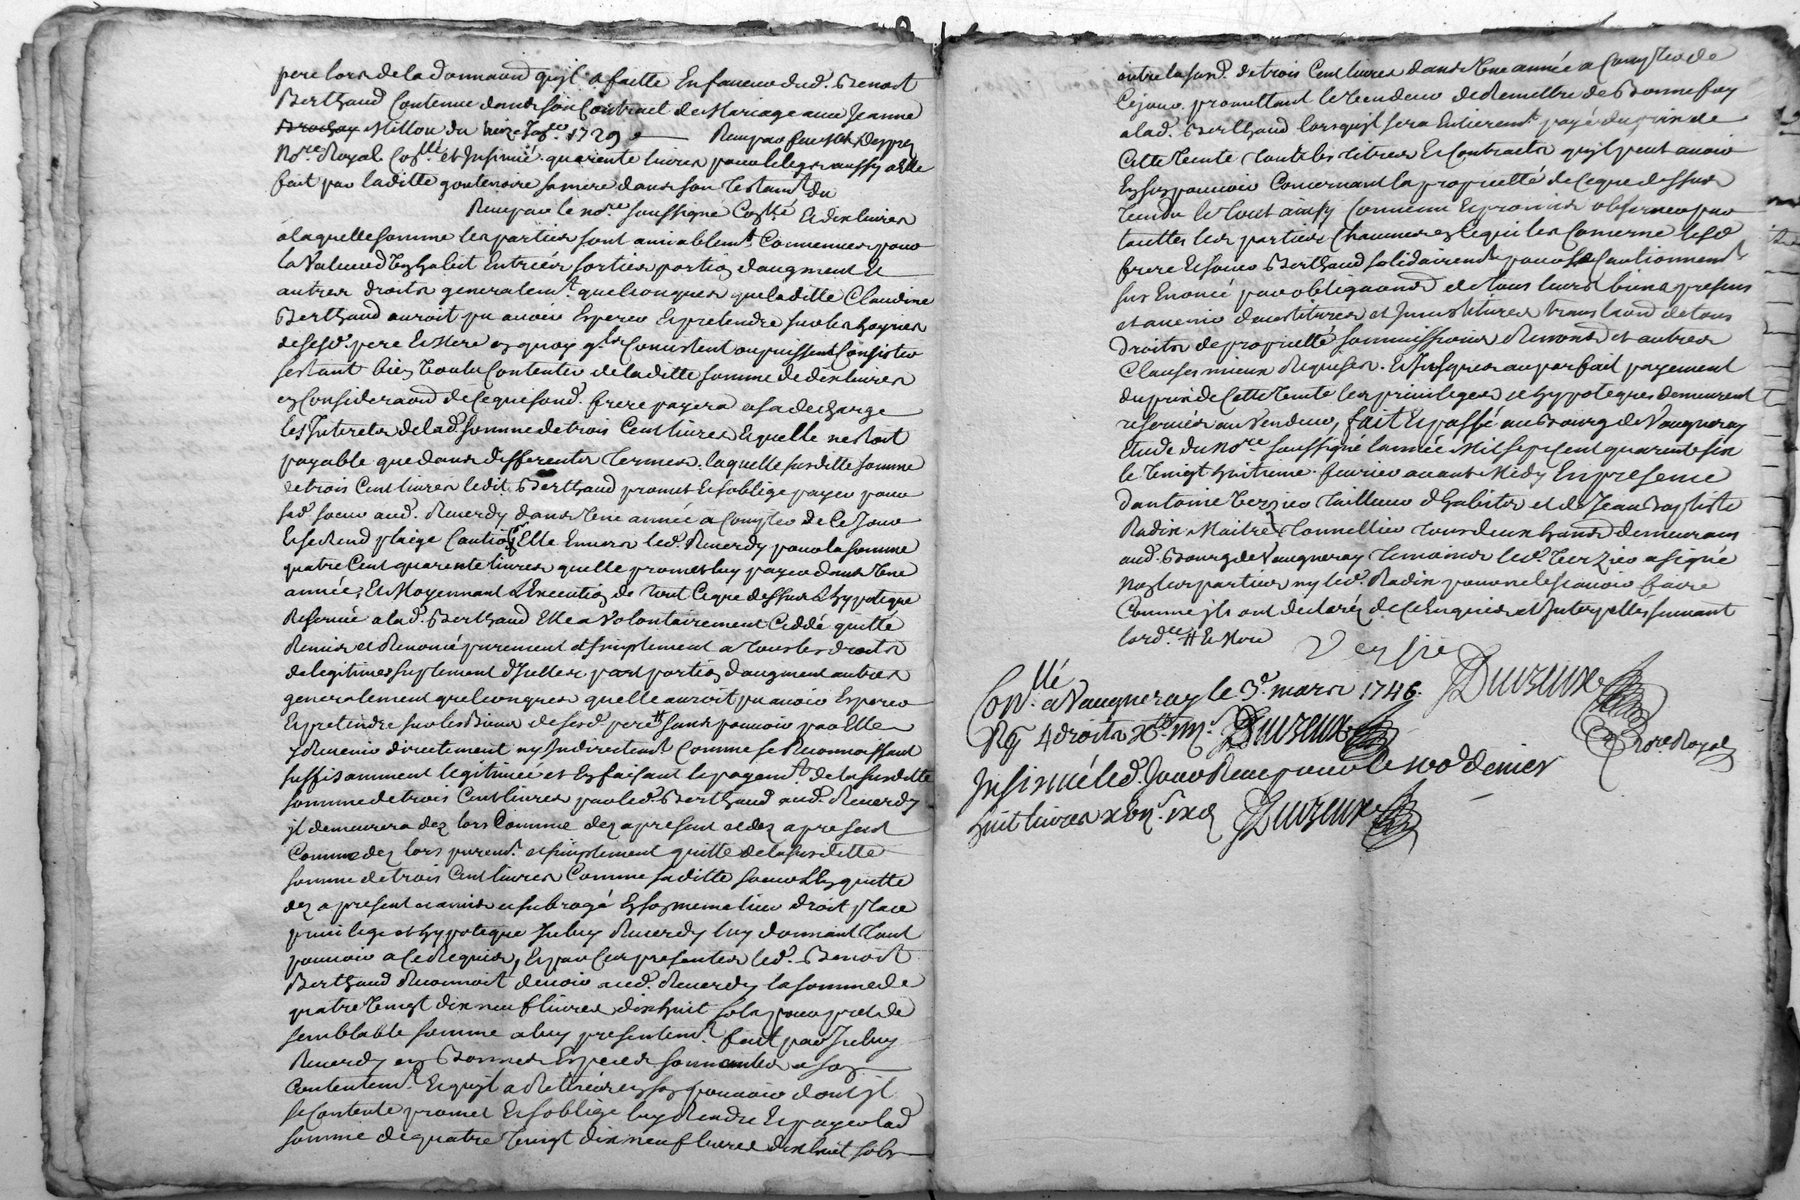 pere lors de la donnaõn quyl a faitte En faveur dud. Benoit
Berthaud Contenue dans son Contract de Mariage avec Jeanne
Brochay Millon du 1729 Receu par feu Me Desprez
Nore. Royal Collé et Insinué. quarente livres pour le legs aussy a Elle
fait par laditte gontenoire sa mere dans son Testamt. du
Receu par le nore. soussigné Collé. Et dix livres
a laquelle somme les parties sont amiablemt. Convenues pour
la Valeur d'habit Entrées sorties portion daugment Et
autres droits generalemt. quelconques que laditte Claudine
Berthaud auroit pu avoir Esperer Et pretendre sur les hoyries
de sesd. pere Et Mere en quoy qls. Consistent ou puissent Consister
sestant bien Voulu Contenter de laditte somme de dix livres
en Consideraõn de Ceque sond. frere payera a sa decharge
les Interets de lad. somme de trois Cent livres Laquelle nestoit
payable que dans differents Termes. laquelle susditte somme
de trois Cent livres ledit Berthaud promet Et soblige payer pour
sad. soeur aud. Reverdy dans Une année a Compter de Ce Jour
Et se Rend pleige Caution d'Elle Envers led. Reverdy pour la somme
quatre Cent quarente livres quelle promet luy payer dans Une
année, Et Moyennant L'Execution de Tout Ceque dessus Lhypoteque
Reservée a lad. Berthaud Elle a Volontairement Ceddé quitté
Remis et Renoncé purement et simplement a Tous les droits
de legitimes suplement d'Icelles part portion daugment autres
generalement quelconques quelle auroit pu avoir Esperer
Et pretendre sur les Biens de sesd. pere # sans pouvoir par Elle
y Revenir directement ny Indirectemt. Comme se Reconnoissant
suffisamment legitimée et En faisant le payemt. de la susditte
somme de trois Cent livres par led. Berthaud aud. Reverdy
il demeurera dez lors Comme dez a present et dez a present
Comme dez lors puremt. et simplement quitte de la susditte
somme de trois Cent livres Comme saditte soeur Len quitte
dez a present a mis et subrogé En son meme lieu droit place
privilege et hypoteque Iceluy Reverdy luy donnant Tout
pouvoir a Ce Requis, Et par Ces presentes led. Benoit
Berthaud Reconnoit devoir aud. Reverdy la somme de
quatre Vingt dix neuf livres dix huit sols pour pret de
semblable somme a luy presentemt. fait par Iceluy
Reverdy en Bonnes Especes sonnantes a son
Contentemt. Et quyl a Retirées en son pouvoir dont il
se Contente promet Et soblige luy Rendre Et payer lad.
somme de quatre Vingt dix neuf livres dix huit sols
outre la susd. de trois Cent livres dans Une année a Compter de
Ce jour. promettant le Vendeur de Remettre de Bonne foy
a lad. Berthaud lorsquyl sera Entieremt. payé du prix de
Cette Vente Toutes les Titres Et Contracts quyl peut avoir
En son pouvoir Concernant la proprieté de Ceque dessus
Vendu Le Tout ainsy Convenu Et promis observer par
touttes les parties Chacunes en Cequi les Concerne lesd.
frere Et soeur Berthaud solidairemt. pour le Cautionnemt.
sus Enoncé par obligaõns de tous leurs biens presens
et avenir devestitures et Investitures translaõn de tous
droits de proprieté soumissions Renonõn. et autres
Clauses mieux Requises. Et Jusques au parfait payement
du prix de Cette Vente les privileges et hypoteques demeurent
reservées au Vendeur, fait Et passé au Bourg de Vaugneray
Etude du nore. soussigné l'année Mil sept cent quarente six
le Vingt huitieme fevrier avant Midy En presence
d'antoine Verzier Tailleur d'habits et de Jean Baptiste
Radix Maitre Tonnellier Tous deux habitants demeurans
aud. Bourg de Vaugneray Temoins led. Verzier a signé
Non les parties ny led. Radix pour ne le sçavoir faire
Comme ils ont declaré de Ce Enquis et Interpellés suivant
lordce. # Et Mere
Verzie
Duvzeux
Nore. Royal
Conllé. a Vaugneray le 3e. mars 1746.
Rg 4 droits Duvzeux
Insinué led. Jour Receu pour le 100e denier
huit livres Duvzeux